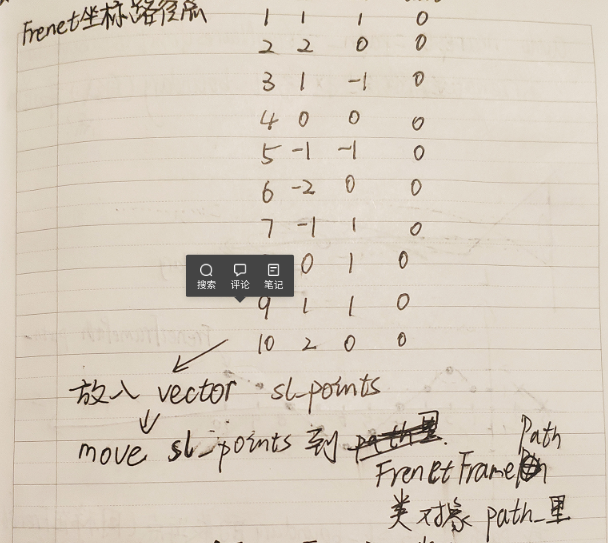 Frenet坐标路径点
1 1 1 0
2 2 0 0
3 1 -1 0
4 0 0 0
5 -1 -1 0
6 -2 0 0
7 -1 1 0
0 1 0
搜索 评论 笔记
9 1 1 0
10 2 0 0
放入 vector sl_points
move sl_points 到
Path
FrenetFrame
类对象 path_里